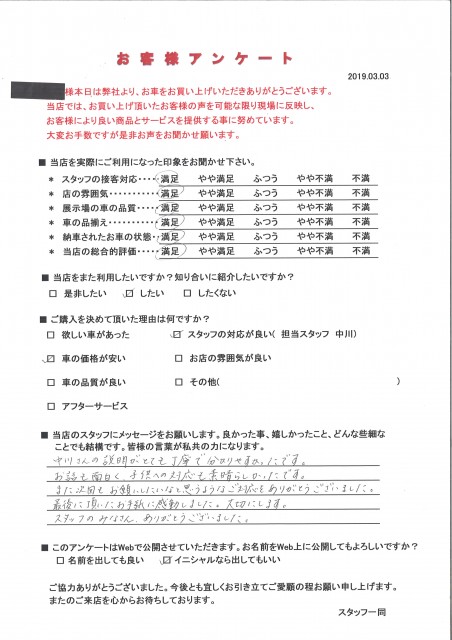 お客様アンケート
2019.03.03
様本日は弊社より、お車をお買い上げいただきありがとうございます。
当店では、お買い上げ頂いたお客様の声を可能な限り現場に反映し、
お客様により良い商品とサービスを提供する事に努めています。
大変お手数ですが是非お声をお聞かせ願います。
■ 当店を実際にご利用になった印象をお聞かせ下さい。
* スタッフの接客対応・・・・満足 やや満足 ふつう やや不満 不満
* 店の雰囲気・・・・・・・・・・・満足 やや満足 ふつう やや不満 不満
* 展示場の車の品質・・・・・満足 やや満足 ふつう やや不満 不満
* 車の品揃え・・・・・・・・・・・満足 やや満足 ふつう やや不満 不満
* 納車されたお車の状態・・満足 やや満足 ふつう やや不満 不満
* 当店の総合的評価・・・・・満足 やや満足 ふつう やや不満 不満
■ 当店をまた利用したいですか？知り合いに紹介したいですか？
□ 是非したい ☑ したい □ したくない
■ ご購入を決めて頂いた理由は何ですか？
□ 欲しい車があった ☑ スタッフの対応が良い( 担当スタッフ 中川)
☑ 車の価格が安い □ お店の雰囲気が良い
□ 車の品質が良い □ その他( )
□ アフターサービス
■ 当店のスタッフにメッセージをお願いします。良かった事、嬉しかったこと、どんな些細な
ことでも結構です。皆様の言葉が私共の力になります。
中川さんの説明がとても丁寧で分かりやすかったです。
お話も面白く、子供への対応も素晴らしかったです。
また次回もお願いしたいなと思うようなご対応をありがとうございました。
最後に頂いたお手紙に感動しました。大切にします。
スタッフのみなさん、ありがとうございました。
■ このアンケートはWebで公開させていただきます。お名前をWeb上に公開してもよろしいですか？
□ 名前を出しても良い ☑ イニシャルなら出してもいい
ご協力ありがとうございました。今後とも宜しくお引き立てご愛顧の程お願い申し上げます。
またのご来店を心からお待ちしております。
スタッフ一同